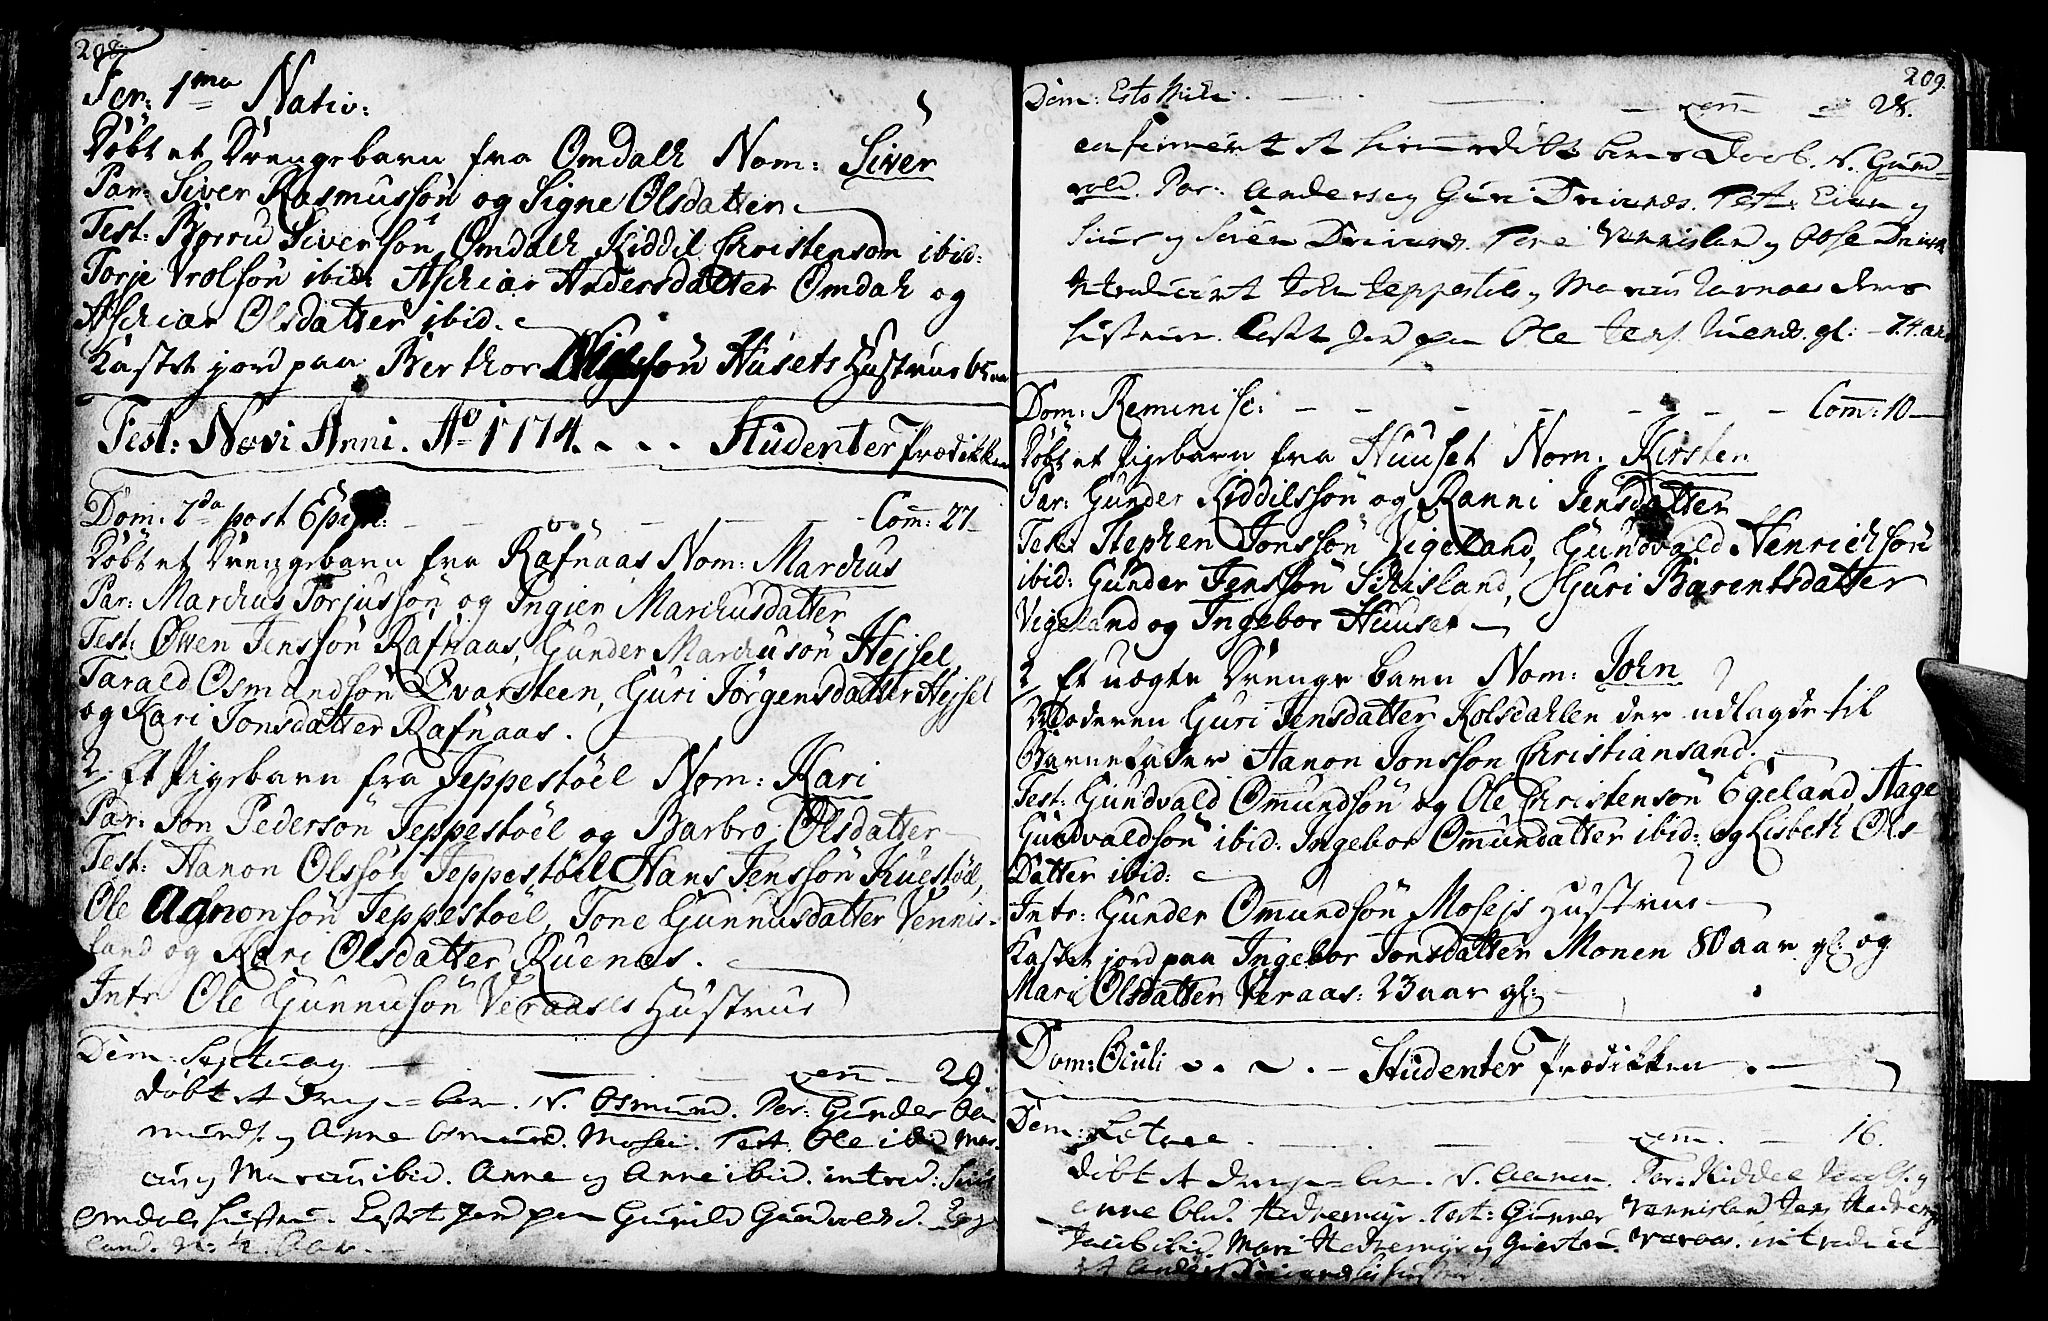 208.
Fer: 1ma Nativ:
Döbt et Drengebarn fra Omdahl Nom: Siver
Par: Siver Rasmussön og Signe Olsdatter
Test: Siversön Omdahl, Kiddil Christensön ibid:
Torje Vrolsön ibid: Aschiar Andersdatter Omdahl og
Aschiar Olsdatter ibid.
Kastet jord paa Berthor Husets Hustrue
Fest: Novi Anni. Ao 1774. - - - Studenter Prædikken
Dom: 2da post Epiph: - - - - - Com: 27
Döbt et Drengebarn fra Rafnaas Nom: Marchus
Par: Marchus Torjussön og Ingier Marchusdatter
Test: Owen Jenssön Rafnaas, Gunder Marchusön Hejsel,
Tarald Osmundsön Qvarsteen, Guri Jörgensdatter Hejsel
og Kari Jonsdatter Rafnaas.
2, Et Pigebarn fra Jeppestöel Nom: Kari
Par: Jon Pedersön Jeppestöel og Barbro Olsdatter
Test: Hanon Olssön Jeppestöel Hans Jenssön Kuestöel,
Ole Aanonsön Jeppestöel, Tone Gunnusdatter Vennis-
land og Kari Olsdatter Ruenæs.
Intr Ole Gunnusön Veraases Hustrue
Dom: Septuag - - - Com - 29.
döbt et Drenge=barn. N. Osmund. Par: Gunder
munds. og Anne Osmund. Mosei. Test. Ole ibid
og Marcus ibid. Anne og Anne ibid. introd:
Omdals Hustru. Kastet Jord paa Gunild Gundvolds d.
209.
Dom: Esto Mihi - - - Com - 28.
confirmert et hiemmedöbt barns Daab. N. Gund=
vold. Par: Anders og Guri Drivenes. Test: og
Siur og Sören Drivenes. Tore Vennisland og Aase
Introducert John Jeppestöls og Marcus Ravnaas deres
Hustruer. Kastet Jord paa Ole Jens. gl: - 74. aar
Dom: Reminisc: - - - - - - - Com: 10 -
Döbt et Pigebarn fra Huuset Nom: Kirsten
Par: Gunder Kiddilssön og Ranni Jensdatter
Test: Stephen Jonssön Vigeland, Gundvald Henrichsön
ibid: Gunder Jenssön Schisland, Guri Barentsdatter
Vigeland og Ingebor Huuset
2, Et uægte Drenge barn Nom: John
Moderen Guri Jensdatter Kolsdahlen der udlagde til
Barnefader Aanon Jonsson Christiansand.
Test: Gundvald Omundsön og Ole Christensön Egeland, Aage
Gundvaldsön ibid: Ingebor Omundatter ibid: og Lisbeth Ols-
datter ibid:
Intr: Gunder Omundsön Mosejs Hustrue
Kastet jord paa Ingebor Jonsdatter Monen 80 aar gl: og
Mari Olsdatter Veraas: 23 aar gl:
Dom: Oculi - - - Studenter Prædikken
Dom: Lætare - - - Com. - 16.
döbt et Drenge=barn. N. Aanon. Par: Kiddel og
Anne Olsd. Hedremyr. Test: Gunner Vennisland Jens
Jacob ibid. Mari Hedremyr og Veraas. introduce